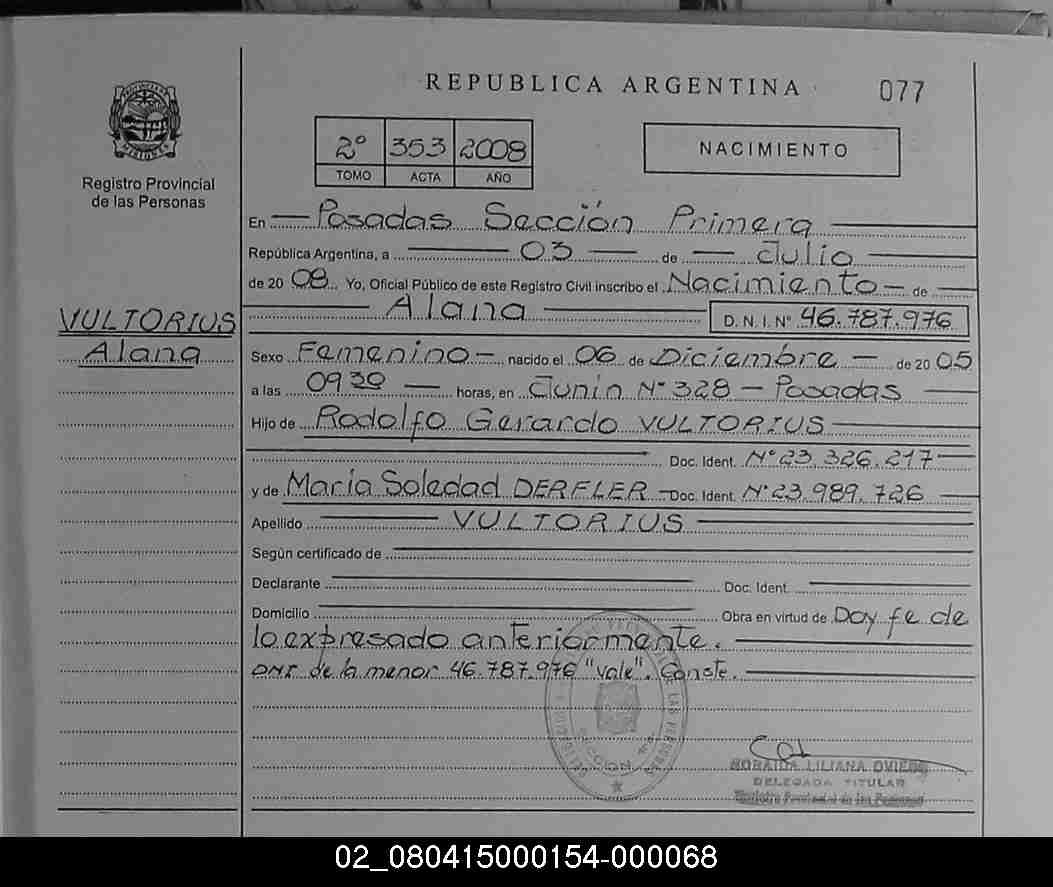 REPUBLICA ARGENTINA
077
MISIONES
Registro Provincial
de las Personas
2º 353 2008
TOMO ACTA AÑO
NACIMIENTO
En Posadas Sección Primera
República Argentina, a 03 de Julio
de 2008 Yo, Oficial Público de este Registro Civil inscribo el Nacimiento de
Alana D.N.I.Nº 46.787.976
VULTORIUS
Alana
Sexo Femenino nacido el 06 de Diciembre de 2005
a las 0930 horas, en Junin Nº 328 - Posadas
Hijo de Rodolfo Gerardo VULTORIUS
Doc. Ident. Nº 23.326.217
y de María Soledad DERFLER Doc. Ident. Nº 23.989.726
Apellido VULTORIUS
Según certificado de
Declarante Doc. Ident.
Domicilio Obra en virtud de Doy fe de
lo expresado anteriormente.
DNI de la menor 46.787.976 "Vale". Conste.
SECCION
LILIANA OVIEDO
DELEGADA TITULAR
Registro Provincial de las Personas
02_080415000154-000068